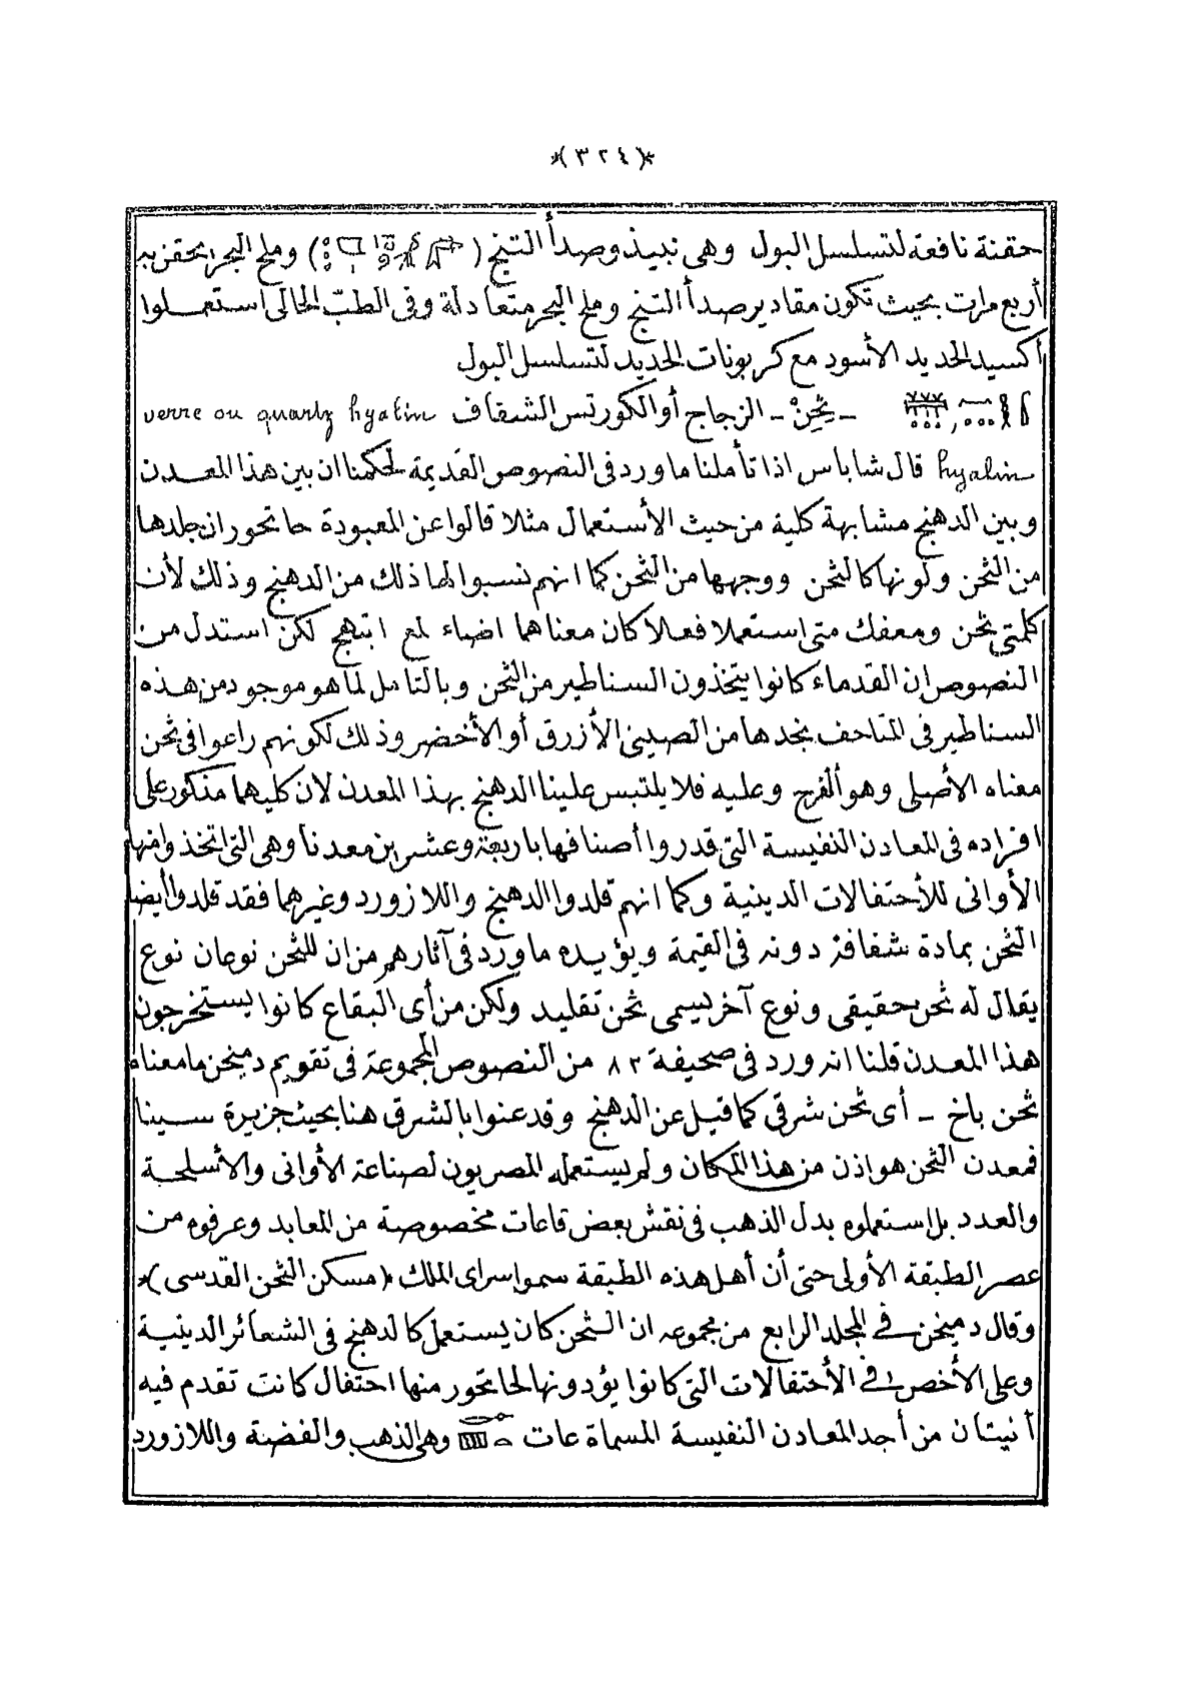 *(٣٢٤)*
حقنة نافعة لتسلسل البول وهى نبيذ وصدأ التبخ ( ) وملح البحر يحقن به
أربع مرات بحيث تكون مقادير صدأ التبخ وملح البحر متعادلة وفى الطب الحالى استعملوا
أكسيد الحديد الأسود مع كربونات الحديد لتسلسل البول
– ثِحِنْ – الزجاج أو الكورتس الشفاف verre ou quartz hyalin
hyalin قال شاباس اذا تأملنا ما ورد فى النصوص القديمة لحكمنا ان بين هذا المعدن
وبين الدهنج مشابهة كلية من حيث الأستعمال مثلا قالوا عن المعبودة حاتحور ان جلدها
من الثحن ولونها كالثحن ووجهها من الثحن كما انهم نسبوا لها ذلك من الدهنج وذلك لأن
كلمتى ثحن ومعفك متى استعملا فعلا كان معناهما اضاء لمع ابتهج لكن استدل من
النصوص ان القدماء كانوا يتخذون السناطير من الثحن وبالتأمل لما هو موجود من هذه
السناطير فى المتاحف نجدها من الصينى الأزرق أو الأخضر وذلك لكونهم راعوا فى ثحن
معناه الأصلى وهو الفرح وعليه فلا يلتبس علينا الدهنج بهذا المعدن لان كليهما مذكور على
افراده فى المعادن النفيسة التى قدروا أصنافها باربعة وعشرين معدنا وهى التى اتخذوا منها
الأوانى للأحتفالات الدينية وكما انهم قلدوا الدهنج واللازورد وغيرهما فقد قلدوا أيضا
الثحن بمادة شفافة دونه فى القيمة ويؤيده ما ورد فى آثارهم من ان للثحن نوعان نوع
يقال له ثحن حقيقى ونوع آخر يسمى ثحن تقليد ولكن من أى البقاع كانوا يستخرجون
هذا المعدن قلنا انه ورد فى صحيفة ٨٢ من النصوص المجموعة فى تقويم دميخن ما معناه
ثحن باخ – أى ثحن شرقى كما قيل عن الدهنج وقد عنوا بالشرق هنا بحيث جزيرة سينا
فمعدن الثحن هو اذن من هذا المكان ولم يستعمله المصريون لصناعة الأوانى والأسلحة
والعدد بل استعملوه بدل الذهب فى نقش بعض قاعات مخصوصة من المعابد وعرفوه من
عصر الطبقة الأولى حتى أن أهل هذه الطبقة سموا سراى الملك *(مسكن الثحن القدسى)*
وقال دميخن فى المجلد الرابع من مجموعه ان الثحن كان يستعمل كالدهنج فى الشعائر الدينية
وعلى الأخص فى الأحتفالات التى كانوا يؤدونها لحاتحور منها احتفال كانت تقدم فيه
أنيتان من أجد المعادن النفيسة المسماة عات وهى الذهب والفضة واللازورد